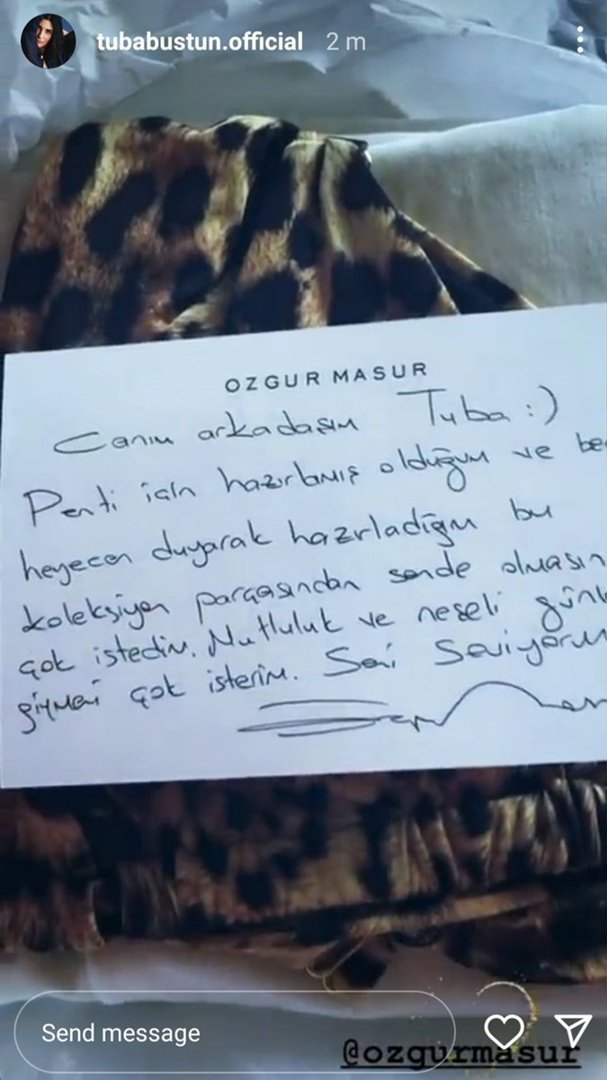 tubabustun.official 2 m
OZGUR MASUR
Canım arkadaşım Tuba :)
Penti için hazırlamış olduğum ve
heyecan duyarak hazırladığım bu
koleksiyon parçasından sende olmasın
çok istedim. Mutluluk ve neşeli
giymeni çok isterim. Seni Seviyorum
Send message
@ozgurmasur